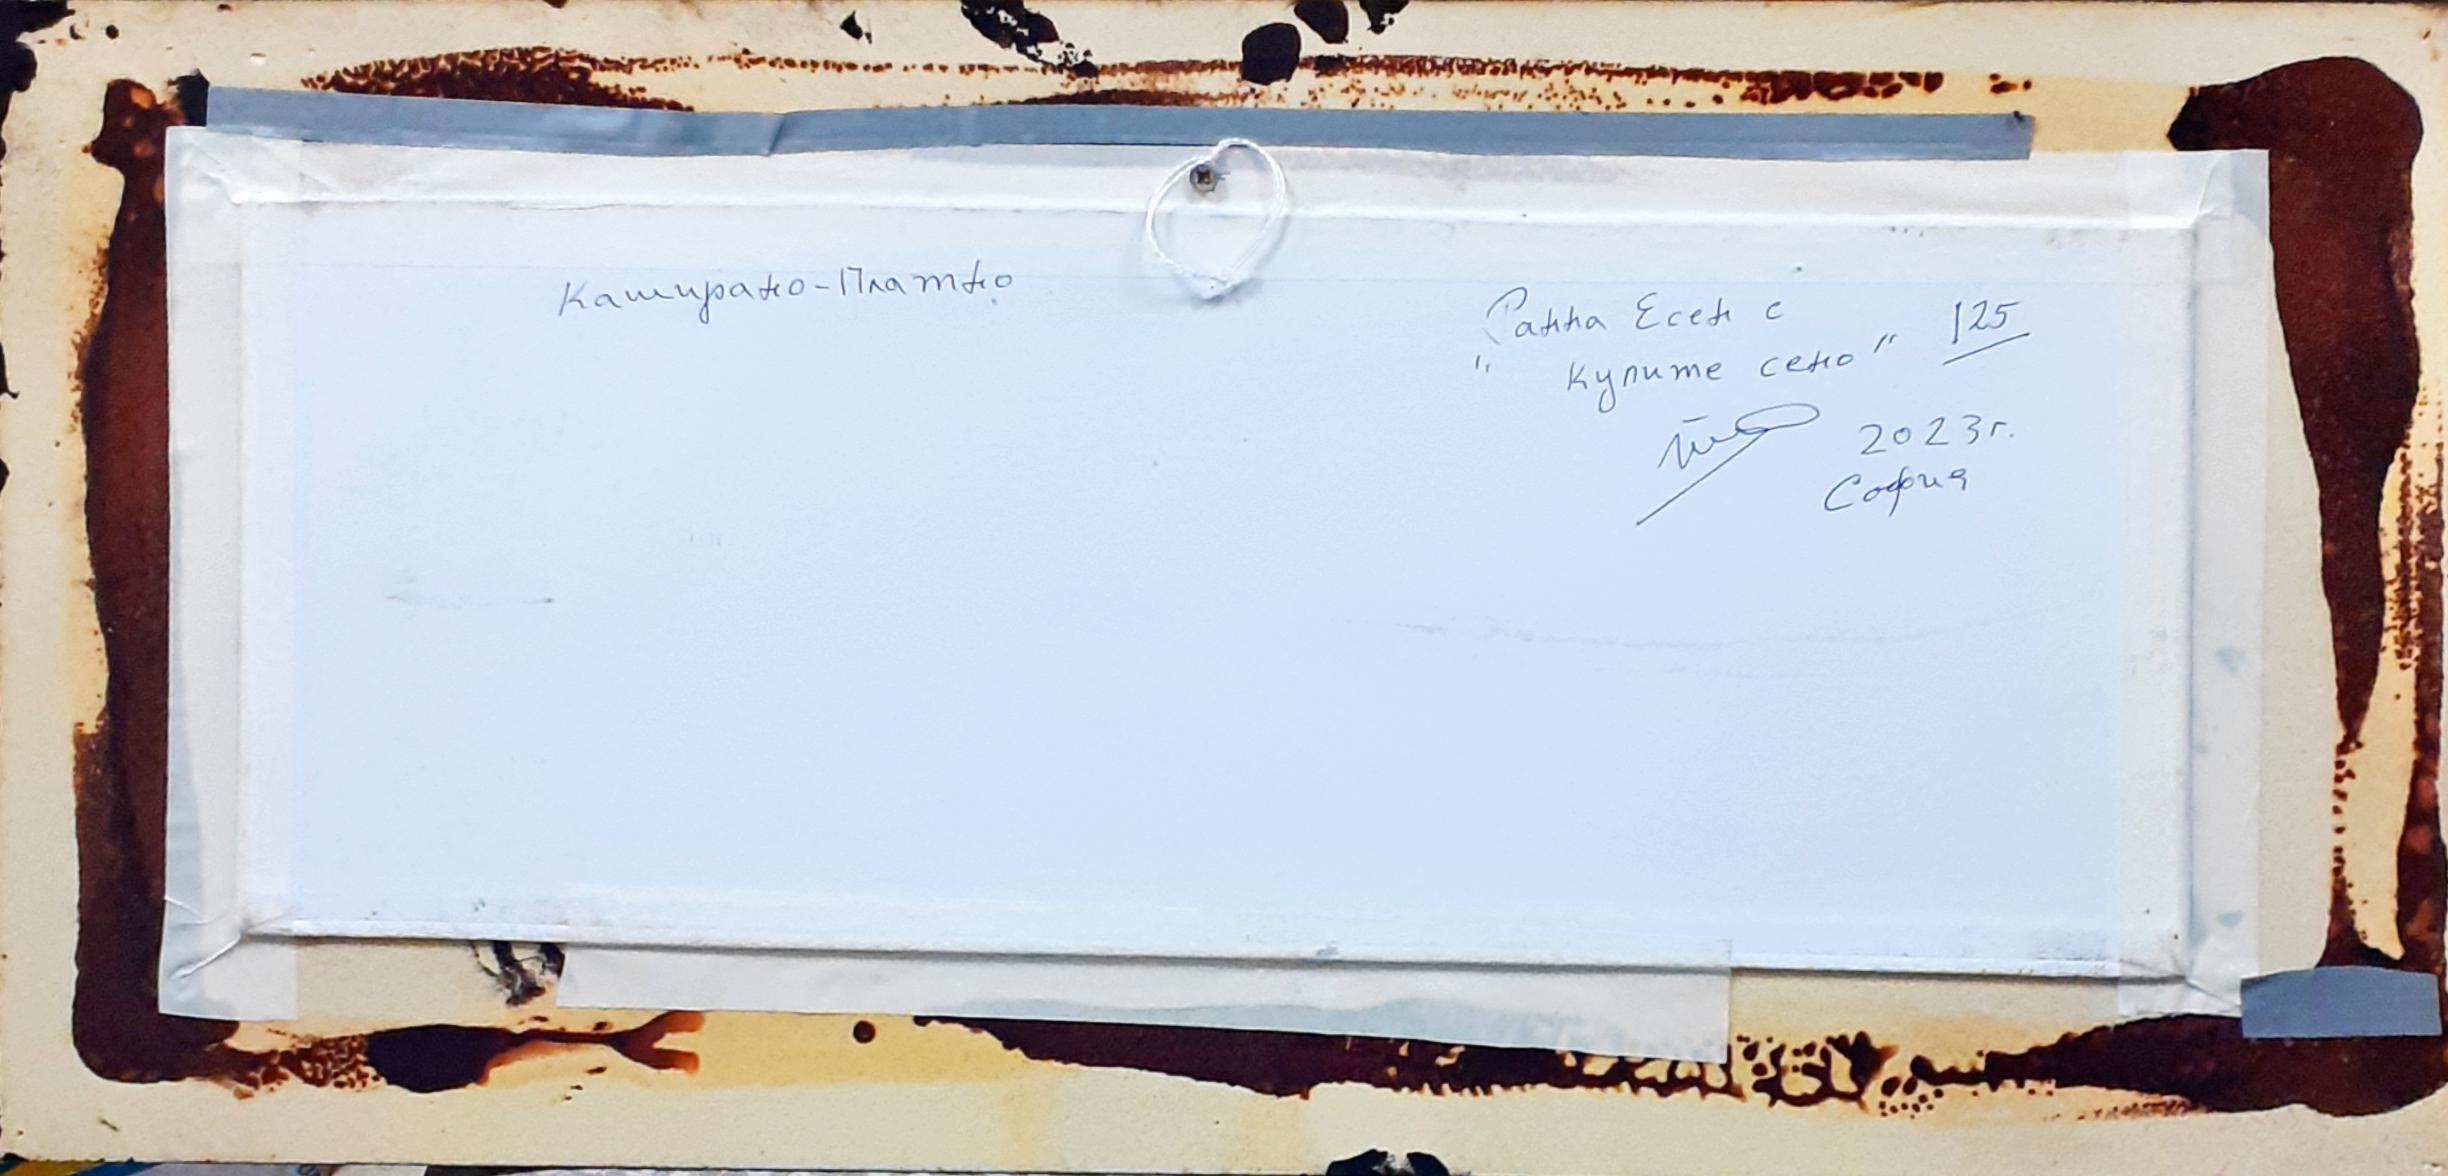 Каширано-Платно
Ранна Есен с
"Купите сено" 125
2023г.
София